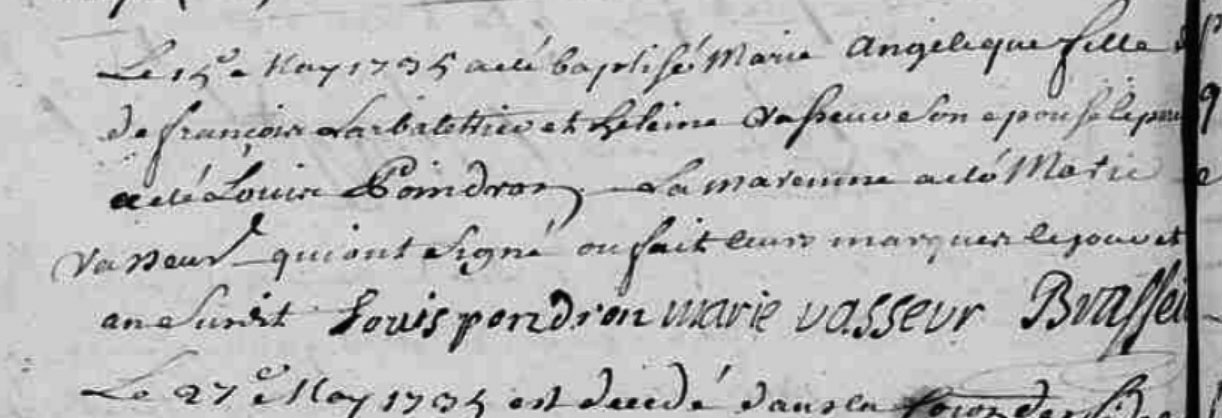 Le 15e May 1735 a eté baptisé Marie Angelique fille
de françois Larbaletrier et heleine Vasseur Son epouse le
a eté Louis Poindron. La mareinne a eté Marie
Vasseur qui ont Signé ou fait leurs marques le jour et
an Susdit Louis pondron marie vasseur
Le 27e May 1735 est decedé dans la